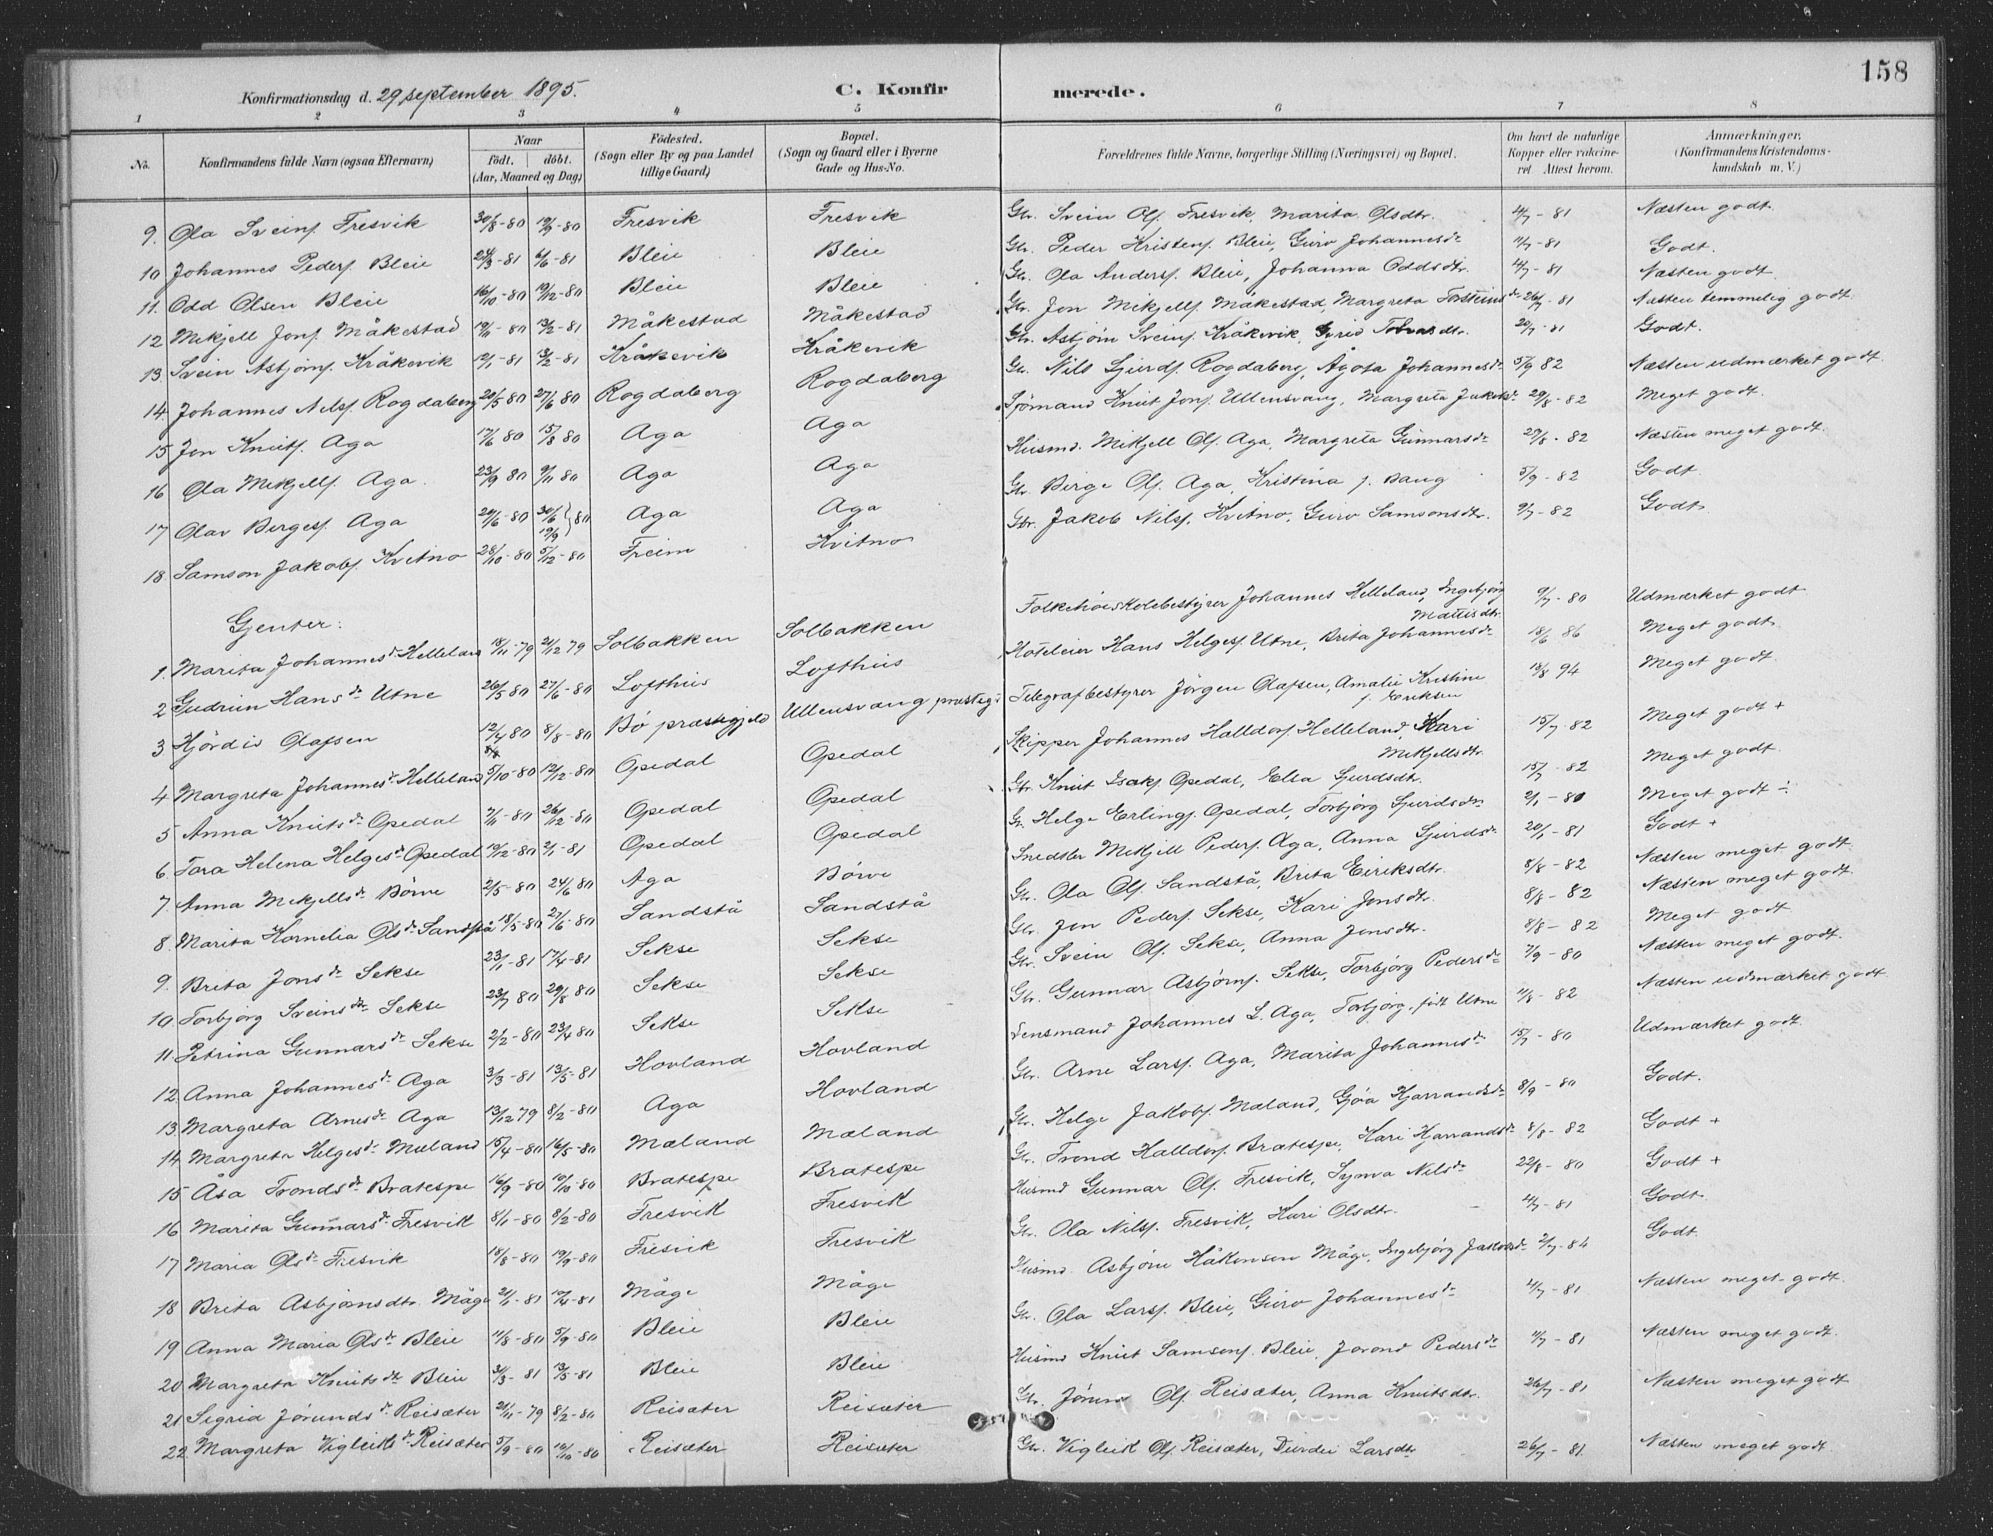 158
Konfirmationsdag d. 29 september 1895. C. Konfirmerede.
1 2 3 4 5 6 7 8
No. Konfirmandens fulde Navn (ogsaa Efternavn) Naar födt. döbt. (Aar, Maaned og Dag) Födested. (Sogn eller By og paa Landet tillige Gaard) Bopæl. (Sogn og Gaard eller i Byerne Gade og Hus-No. Forældrenes fulde Navne, borgerlige Stilling (Næringsvei) og Bopæl. Om havt de naturlige Kopper eller vakcineret. Attest herom. Anmærkninger. (Konfirmandens Kristendomskundskab m. V.)
9. Ola Sveins. Fresvik 30/8-80 19/9-80 Fresvik Fresvik Gbr. Svein Ols. Fresvik, Marita Olsdtr. 4/7-81 Næsten godt.
10 Johannes Peders. Bleie 24/3-81 6/6-81 Bleie Bleie Gbr. Peder Kristens. Bleie, Guro Johannesdr 4/7-81 Godt.
11. Odd Olsen Bleie 16/10-80 19/12-80 Bleie Bleie Gbr. Ola Anders. Bleie, Johanna Oddsdtr. 4/7-81 Næsten godt.
12 Mikjell Jons. Måkestad 19/11-80 13/2-81 Måkestad Måkestad Gbr. Jon Mikjells. Måkestad, Margreta Torsteinsdr 26/7-81 Næsten temmelig godt.
13. Svein Asbjörns. Kråkevik 12/1-81 13/2-81 Kråkevik Kråkevik Gbr. Asbjörn Sveins. Kråkevik, 20/7-81 Godt.
14 Johannes Nils. Rogdaberg 20/5 80 27/6 80 Rogdaberg Rogdaberg Gbr. Nils Sjurds. Rogdaberg, Ågota Johannesdr 5/9 82 Næsten udmærket godt
15 Jon Knuts. Aga 17/6 80 15/8 80 Aga Aga Sjömand Knut Jons. Ullensvang, Margreta Jakobsdr 29/8-82 Meget godt.
16 Ola Mikjells. Aga. 23/9 80 9/11 80 Aga Aga Husmd. Mikjell Ols. Aga, Margreta Gunnarsdr 29/8-82 Næsten meget godt.
17 Olav Berges. Aga 29/6-80 30/6 19/9 } 80 Aga Aga Gbr. Berge Ols. Aga, Kristina f. Bang 5/9-82 Godt.
18. Samson Jakobs. Kvitno 28/10-80 5/12-80 Freim Kvitno Gbr. Jakob Nils. Kvitno, Guro Samsonsdtr. 9/7-82 Godt.
Gjenter:
1. Marita Johannesdr Helleland 18/11-79 21/12 79 Solbakken Solbakken Folkehöiskolebestyrer Johannes Helleland, Ingebjörg Mattisdtr. 9/7-80 Udmærket godt.
2 Gudrun Hansdr Utne 26/5 80 27/6-80 Lofthus Lofthus Hoteleier Hans Helges. Utne, Brita Johannesdr 18/6 86 Meget godt.
3 Hjördis Olafsen 12/4 80 8/8-80 Bö præstegjeld Ullensvang præsteg. Telegrafbestyrer Jörgen Olafsen, Amalie Kristine f. Eriksen 13/8 94 Meget godt.
4 Margreta Johannesdr Helleland 5/10-80 12/12-80 Opedal Opedal Skipper Johannes Halldors. Helleland, Kari Mikjellsdtr. 15/7-82 Meget godt +
5 Anna Knutsdr Opedal 7/11-80 26/12-80 Opedal Opedal Gbr. Knut Isaks. Opedal, Ella Sjurdsdtr. 15/7-82 Meget godt.
6 Tora Helena Helgesdr Opedal 19/12-80 2/1-81 Opedal Opedal Gbr. Helge Erlings. Opedal, Torbjörg Sjurdsdtr 2/1-80 Meget godt ÷
7. Anna Mikjellsdr Börve 2/5-80 24/6 80 Aga Börve Snedker Mikjell Peders. Aga, Anna Sjurdsdr 20/1-81 Godt +
8. Marita Kornelia Olsdr Sandstå 18/5-80 27/6-80 Sandstå Sandstå Gbr. Ola Ols. Sandstå, Brita Eiriksdtr. 8/8-82 Næsten meget godt.
9. Brita Jonsdr Sekse 23/1-81 17/4-81 Sekse Sekse Gbr. Jon Peders. Sekse, Kari Jonsdtr. 8/8-82 Næsten meget godt.
10 Torbjörg Sveinsdtr Sekse 23/7 80 29/8 80 Sekse Sekse Gbr. Svein Ols. Sekse, Anna Jonsdtr. 8/8-82 Meget godt
11. Petrina Gunnarsdr Sekse 2/2-80 23/4 80 Sekse Sekse Gbr. Gunnar Asbjörns. Sekse, Torbjörg Pedersdr 7/9-80 Næsten meget godt.
12. Anna Johannesdr Aga 3/3-81 13/5-81 Hovland Hovland Lensmand Johannes L. Aga, Torbjörg, född Utne 11/8-82 Næsten udmærket godt
13. Margreta Arnesdr Aga 13/12 79 8/2-80 Aga Hovland Gbr. Arne Lars. Aga, Marita Johannesdr 15/7-80 Udmærket godt.
14 Margreta Helgesdr Mæland 15/4-80 16/5-80 Mæland Mæland Gbr. Helge Jakobs. Mæland, Gjöa Kjarrandsdr 8/9-80 Godt.
15 Åsa Trondsdr Bratespe 16/9-80 10/10-80 Bratespe Bratespe Gbr. Trond Halldors. Bratespe, Kari Kjarrandsdr 8/8-82 Godt +
16 Marita Gunnarsdr Fresvik 8/1-80 8/2-80 Fresvik Fresvik Husmd Gunnar Ols. Fresvik, Synva Nilsdr 22/8-80 Godt +
17 Maria Olsdr Fresvik 18/8-80 19/9-80 Fresvik Fresvik Gbr. Ola Nils. Fresvik, Kari Olsdtr. 4/7-81 Godt.
18 Brita Asbjörnsdtr. Måge 21/1-81 10/4-81 Måge Måge Husmd. Asbjörn Håkonson Måge, Ingebjörg Jakobsdr 2/7-84 Godt.
19 Anna Maria Olsdr Bleie 11/8-80 5/9-80 Bleie Bleie Gbr. Ola Lars. Bleie, Guro Johannesdr 4/7-81 Næsten meget godt.
20 Margreta Knutsdtr Bleie 3/3-81 13/5-81 Bleie Bleie Husmd Knut Samsons. Bleie, Jorond Pedersdr 4/7-81 Næsten meget godt.
21 Sigrid Jörundsdr Reisæter 21/11-79 8/2-80 Reisæter Reisæter Gbr. Jörund Ols. Reisæter, Anna Knutsdtr. 26/7-81 Næsten meget godt
22. Margreta Vigleiksdr Reisæter 5/9-80 10/10-80 Reisæter Reisæter Gbr. Vigleik Ols. Reisæter, Durdei Larsdtr 26/7-81. Næsten meget godt.